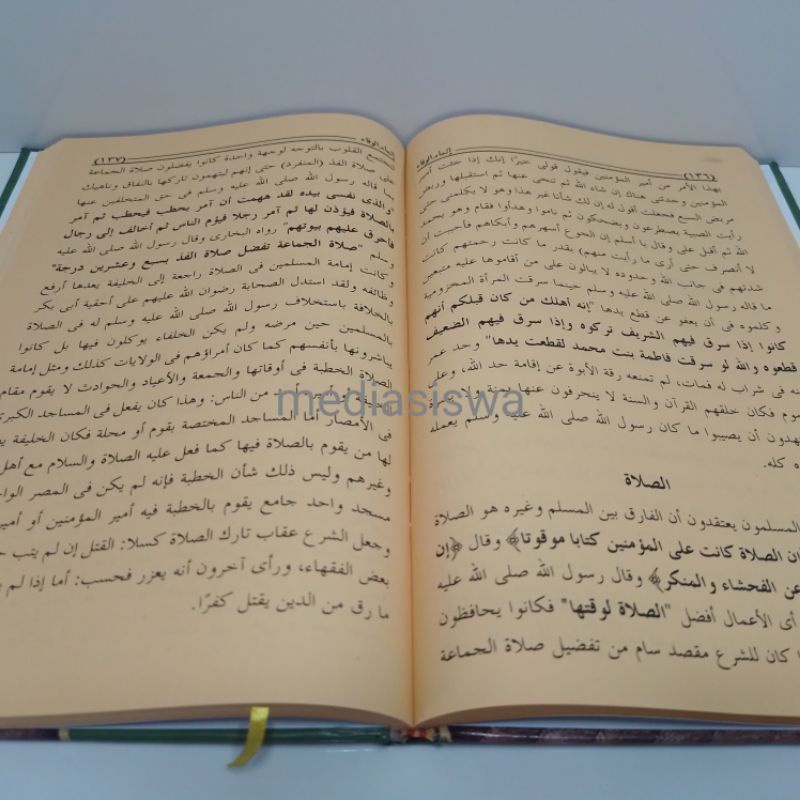 (١٣٦) إتمام الوفاء
بهذا الأمر من أمير المؤمنين فيقول قولى خيرًا إنك إذا جئت أمير
المؤمنين وحدتنى هناك إن شاء الله ثم تنحى عنها ثم استقبلها وربض
مربض السبع فجعلت أقول له إن لك شأنا غير هذا وهو لا يكلمنى حتى
رأيت الصبية يصطرعون ويضحكون ثم ناموا وهدأوا فقام وهو يحمد
الله ثم أقبل على وقال يا أسلم إن الجوع أسهرهم وأبكاهم فأحببت أن
لا أنصرف حتى أرى ما رأيت منهم) بقدر ما كانت رحمتهم كانت
شدتهم فى جانب الله وحدوده لا يبالون على من أقاموها عليه متبعين
ما قاله رسول الله صلى الله عليه وسلم حينما سرقت المرأة المخزومية
وكلموه فى أن يعفو عن قطع يدها "إنه أهلك من كان قبلكم أنهم
كانوا إذا سرق فيهم الشريف تركوه وإذا سرق فيهم الضعيف
قطعوه والله لو سرقت فاطمة بنت محمد لقطعت يدها" وحد عمر
نه فى شراب له فمات، لم تمنعه رقة الأبوة عن إقامة حد الله، وعلى
موم فكان خلقهم القرآن والسنة لا ينحرفون عنها يمنة ولا يسرة
هدون أن يصيبوا ما كان رسول الله صلى الله عليه وسلم يعمله
ه كله.
الصلاة
المسلمون يعتقدون أن الفارق بين المسلم وغيره هو الصلاة
ان الصلاة كانت على المؤمنين كتابا موقوتا﴾ وقال ﴿إن
عن الفحشاء والمنكر﴾ وقال رسول الله صلى الله عليه
أى الأعمال أفضل "الصلاة لوقتها" فكانوا يحافظون
ا كان للشرع مقصد سام من تفضيل صلاة الجماعة
إتمام الوفاء (١٣٧)
لتجتمع القلوب بالتوجه لوجهة واحدة كانوا يفضلون صلاة الجماعة
على صلاة الفذ (المنفرد) حتى إنهم ليتهمون تاركها بالنفاق وناهيك
بما قاله رسول الله صلى الله عليه وسلم فى حق المتخلفين عنها
"والذى نفسى بيده لقد هممت أن آمر بحطب فيحطب ثم آمر
بالصلاة فيؤذن لها ثم آمر رجلا فيؤم الناس ثم أخالف إلى رجال
فأحرق عليهم بيوتهم" رواه البخارى وقال رسول الله صلى الله عليه
وسلم "صلاة الجماعة تفضل صلاة الفذ بسبع وعشرين درجة"
وكانت إمامة المسلمين فى الصلاة راجعة إلى الخليفة يعدها أرفع
وظائفه ولقد استدل الصحابة رضوان الله عليهم على أحقية أبى بكر
بالخلافة باستخلاف رسول الله صلى الله عليه وسلم له فى الصلاة
بالمسلمين حين مرضه ولم يكن الخلفاء يوكلون فيها بل كانوا
يباشرونها بأنفسهم كما كان أمراؤهم فى الولايات كذلك ومثل إمامة
الصلاة الخطبة فى أوقاتها والجمعة والأعياد والحوادث لا يقوم مقام
من الناس: وهذا كان يفعل فى المساجد الكبرى
فى الأمصار أما المساجد المختصة بقوم أو محلة فكان الخليفة
لها من يقوم بالصلاة فيها كما فعل عليه الصلاة والسلام مع أهل
وغيرهم وليس ذلك شأن الخطبة فإنه لم يكن فى المصر الوا
مسجد واحد جامع يقوم بالخطبة فيه أمير المؤمنين أو أمير
وجعل الشرع عقاب تارك الصلاة كسلا: القتل إن لم يتب
بعض الفقهاء، ورأى آخرون أنه يعزر فحسب: أما إذا لم
ما رق من الدين يقتل كفرًا.
mediasiswa